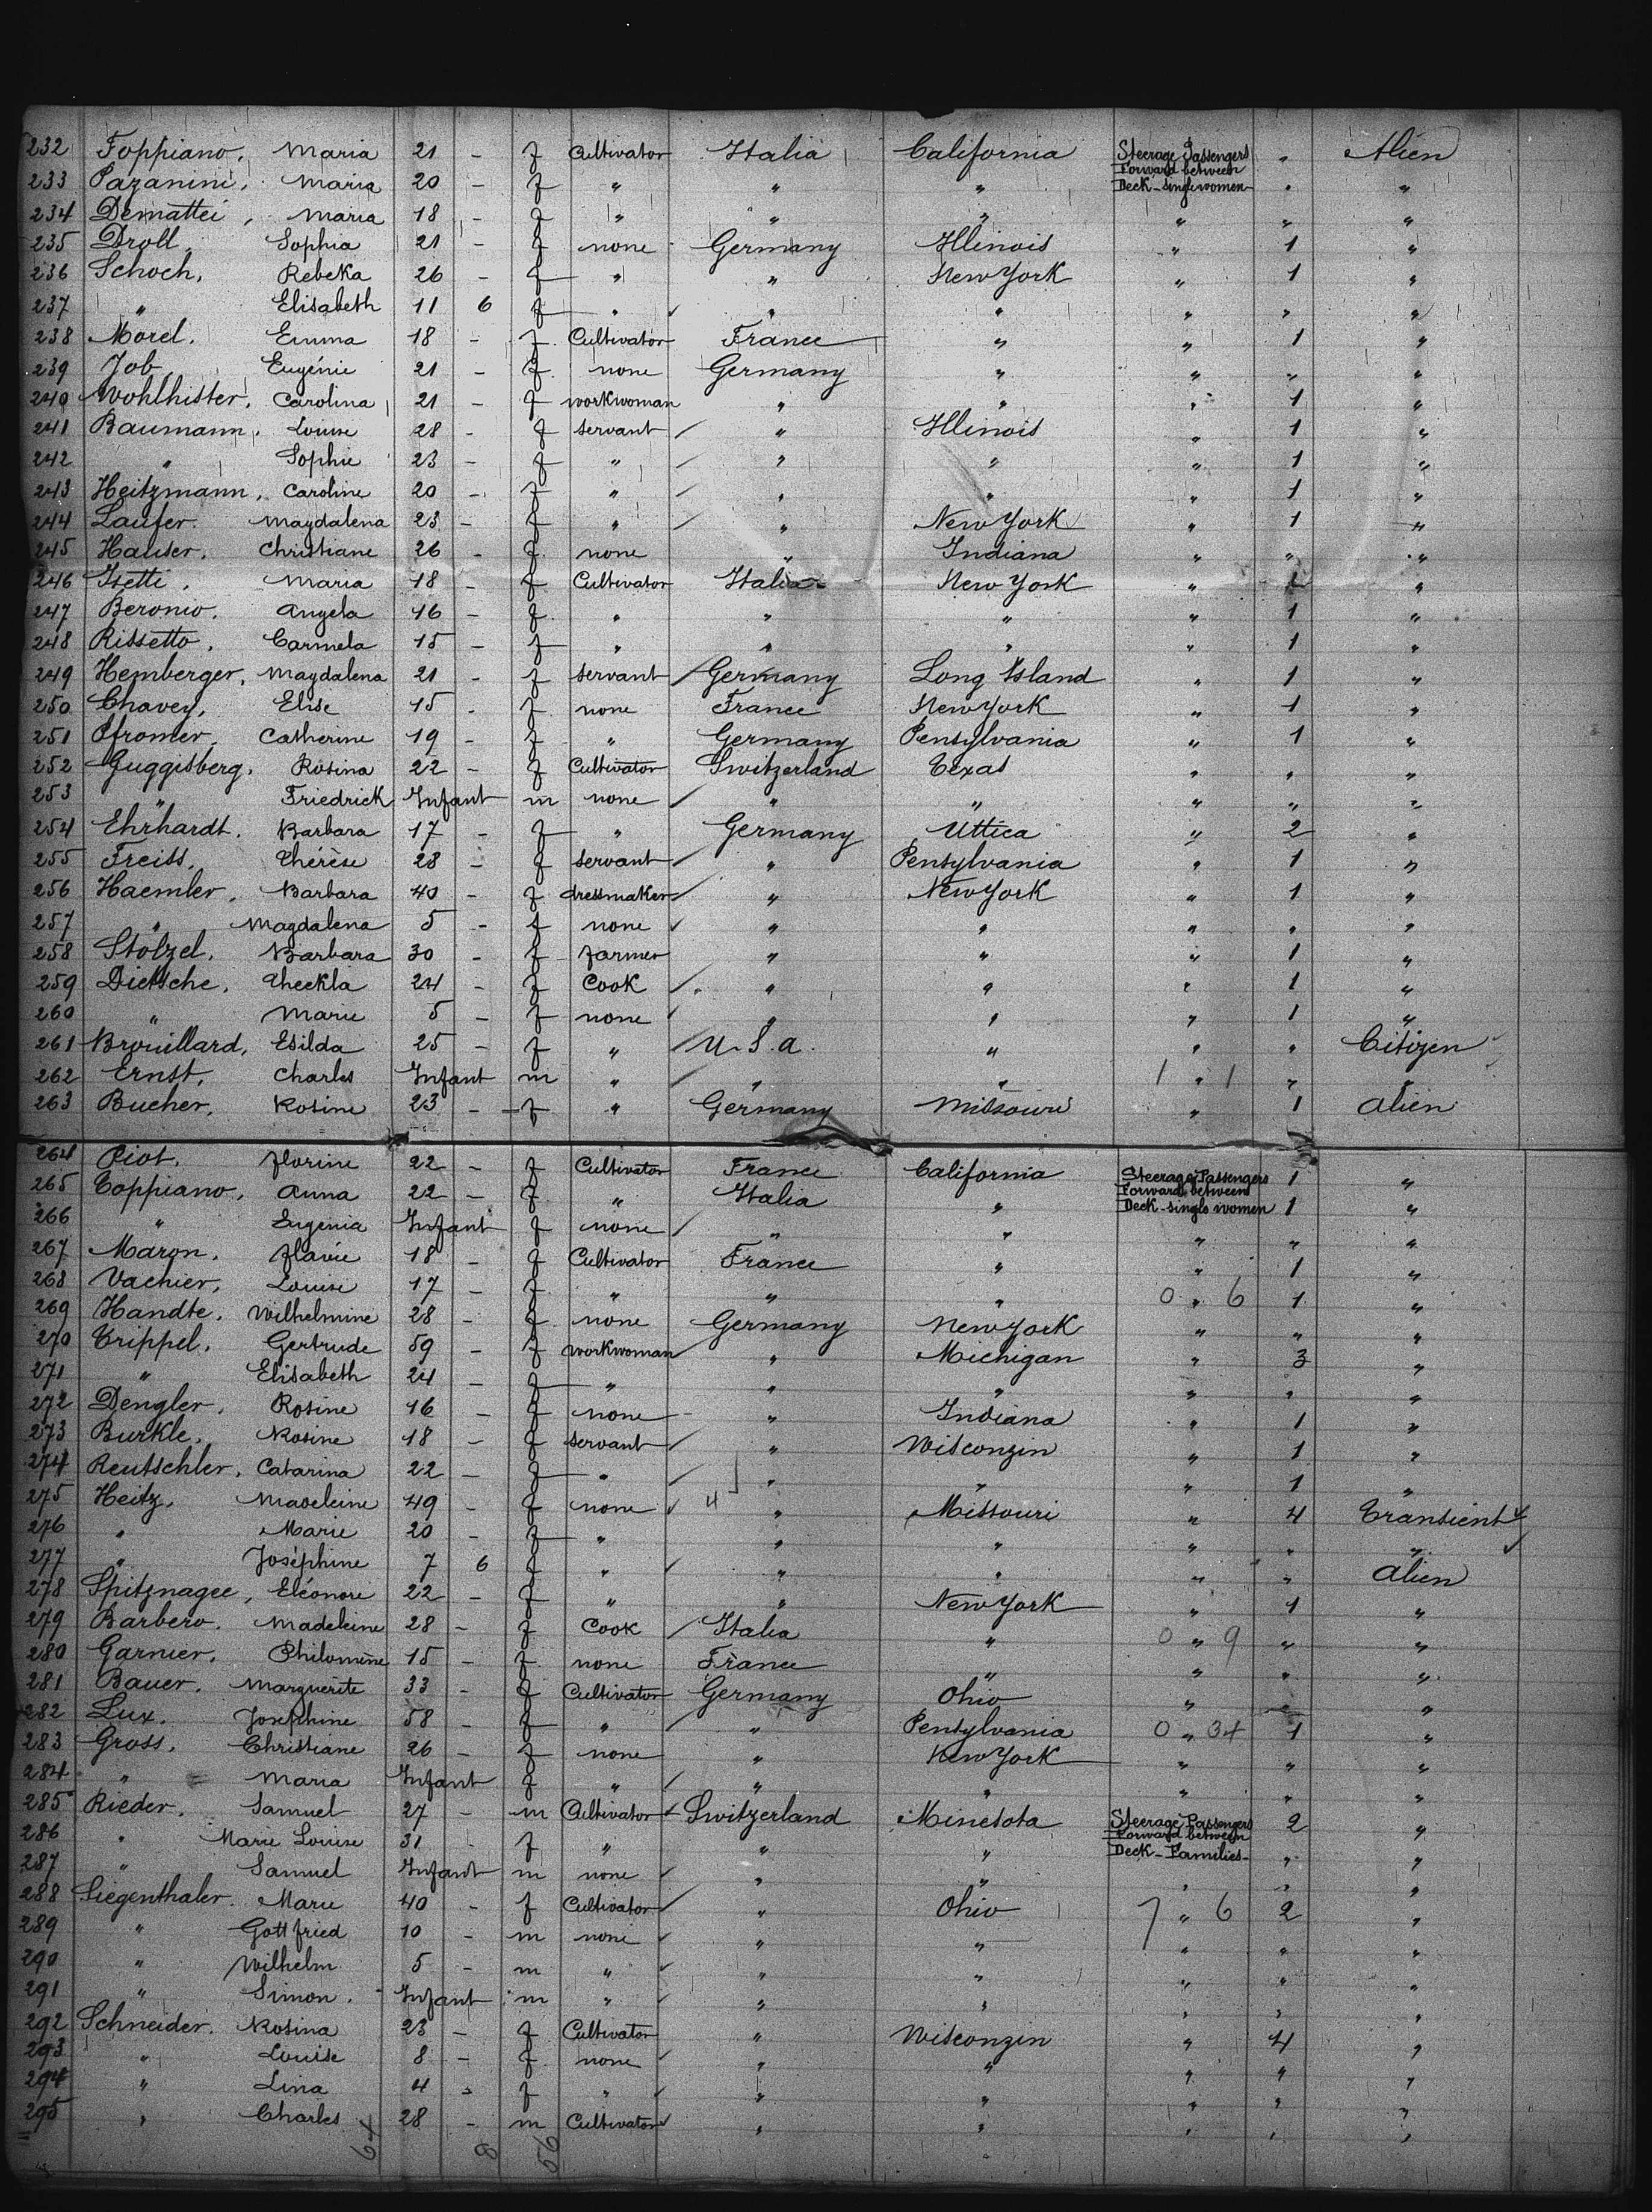 232 Foppiano, Maria 21 - f Cultivator Italia California Steerage Passengers Forward between Deck - single women - " Alien
233 Pazanini, Maria 20 - f " " " " "
234 Demattei, Maria 18 - f " " " " " "
235 Droll, Sophia 21 - f none Germany Illinois " 1 "
236 Schoch, Rebeka 26 - f " " New York " 1 "
237 " Elisabeth 11 6 f " " " " " "
238 Morel, Emma 18 - f Cultivator France " " 1 "
239 Job, Eugénie 21 - f none Germany " " " "
240 Wohlhister, Carolina 21 - f workwoman " " " 1 "
241 Baumann, Louise 28 - f servant " Illinois " 1 "
242 " Sophie 23 - f " " " " 1 "
243 Heitzmann, Caroline 20 - f " " " " 1 "
244 Laufer, Magdalena 23 - f " " New York " 1 "
245 Hauser, Christiane 26 - f none " Indiana " " "
246 Isetti, Maria 18 - f Cultivator Italia New York " 1 "
247 Beronio, Angela 16 - f " " " " 1 "
248 Rissetto, Carmela 15 - f " " " " 1 "
249 Hemberger, Magdalena 21 - f servant Germany Long Island " 1 "
250 Chavey, Elise 15 - f none France New York " 1 "
251 Pfromer, Catherine 19 - f " Germany Pensylvania " 1 "
252 Guggisberg, Rosina 22 - f Cultivator Switzerland Texas " " "
253 " Friedrick Infant m none " " " " "
254 Ehrhardt, Barbara 17 - f " Germany Uttica " 2 "
255 Freiss, Thérèse 28 - f servant " Pensylvania " 1 "
256 Haemler, Barbara 40 - f dressmaker " New York " 1 "
257 " Magdalena 5 - f none " " " " "
258 Stolzel, Barbara 30 - f farmer " " " 1 "
259 Dietsche, Theckla 24 - f Cook " " " 1 "
260 " Marie 5 - f none " " " 1 "
261 Brouillard, Esilda 25 - f " U.S.a. " " " Citizen
262 Ernst, Charles Infant m " " " 1 " 1 " "
263 Bucher, Rosine 23 - f " Germany Missouri " 1 Alien
264 Piot, Florine 22 - f Cultivator France California Steerage Passengers Forward between Deck - single women 1 "
265 Coppiano, Anna 22 - f " Italia " 1 "
266 " Eugenia Infant f none " " " " "
267 Maron, Flavie 18 - f Cultivator France " " 1 "
268 Vachier, Louise 17 - f " " " 0 " 6 1 "
269 Handte, Wilhelmine 28 - f none Germany New York " " "
270 Trippel, Gertrude 59 - f workwoman " Michigan " 3 "
271 " Elisabeth 24 - f " " " " " "
272 Dengler, Rosine 16 - f none " Indiana " 1 "
273 Burkle, Rosine 18 - f servant " Wisconzin " 1 "
274 Reutschler, Catarina 22 - f " " " " 1 "
275 Heitz, Madeleine 49 - f none 4 " Missouri " 4 Transient
276 " Marie 20 - f " " " " " "
277 " Joséphine 7 6 f " " " " " Alien
278 Spitznagee, Eléonore 22 - f " " New York " 1 "
279 Barbero, Madeleine 28 - f Cook Italia " 0 " 9 " "
280 Garnier, Philomène 15 - f none France " " " "
281 Bauer, Marguerite 33 - f Cultivator Germany Ohio " " "
282 Lux, Josephine 58 - f " " Pensylvania 0 " 34 1 "
283 Gross, Christiane 26 - f none " New York " " "
284 " Maria Infant f " " " " " "
285 Rieder, Samuel 27 - m Cultivator Switzerland Minesota Steerage Passengers Forward between Deck - Families - 2 "
286 " Marie Louise 31 - f " " " "
287 " Samuel Infant m none " " " " "
288 Siegenthaler, Marie 40 - f Cultivator " Ohio 7 " 6 2 "
289 " Gottfried 10 - m none " " " " "
290 " Wilhelm 5 - m " " " " " "
291 " Simon Infant m " " " " " "
292 Schneider, Rosina 23 - f Cultivator " Wisconzin " 4 "
293 " Louise 8 - f none " " " " "
294 " Lina 4 - f " " " " " "
295 " Charles 28 - m Cultivator " " " " "
64 8 56